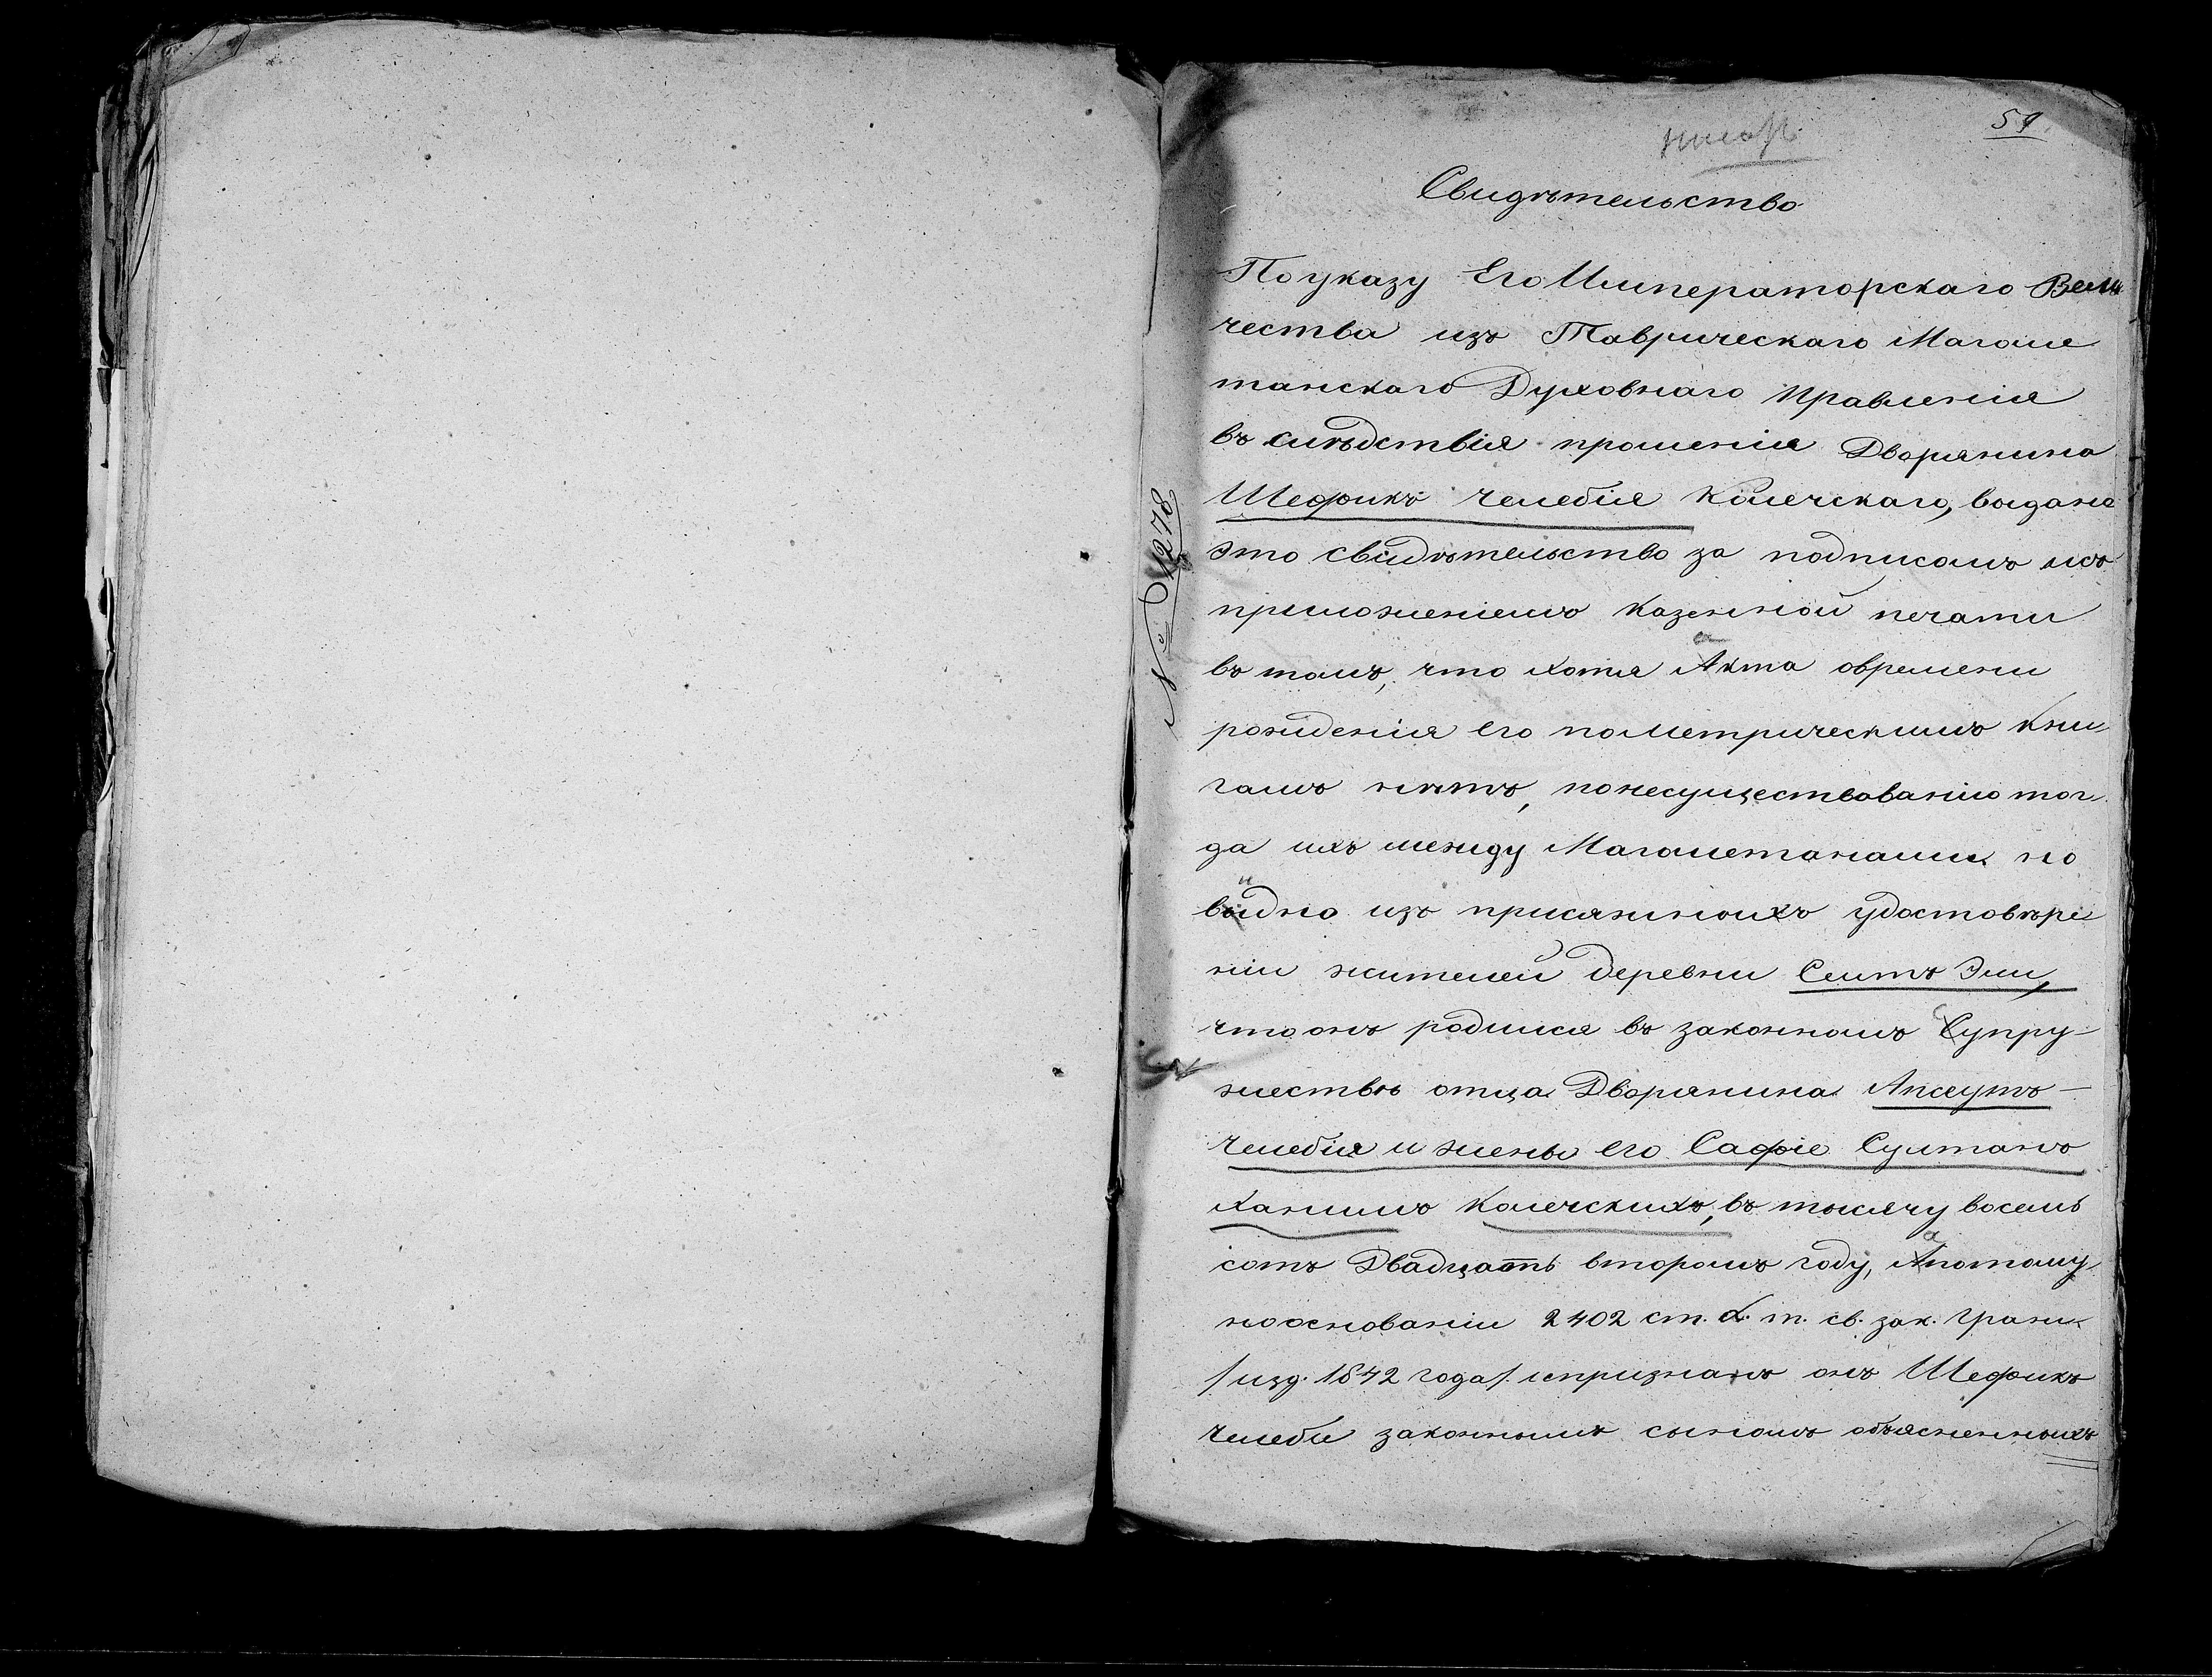 59
Свидѣтельство
По указу Его Императорскаго Вели
чества изъ Таврическаго Магоме
танскаго Духовнаго Правленія
въ слѣдствія прошенія Дворянина
Шефикъ челебія Колечскаго, выдано
это свидѣтельство за подписомъ исъ
приложеніемъ Казенной печати
въ томъ, что хотя Акта овремени
рожденія его по метрическимъ кни
гамъ нѣтъ, по несуществованію тог
да ихъ между Магометанами но
видно изъ присяжныхъ удостовѣре
ніи жителей деревни Сеитъ Эли,
что онъ родился въ законномъ Супру
жествѣ отца Дворянина Апсеутъ
челебія и жены его Сафіе Султанъ
Ханимъ Колечскихъ, въ тысячу восемь
сотъ Двадцать второмъ году, Апотому
на основаніи 2402 ст. X. т. св. зак. Гражд.
/ изд. 1842 года/. ипризнанъ онъ Шефикъ
Челеби законнымъ сыномъ объясненныхъ
№ 1278